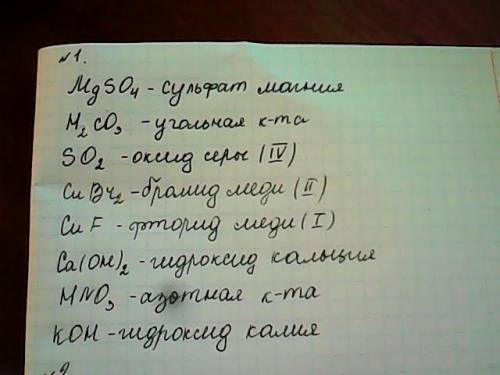 №1.
MgSO₄ - сульфат магния
H₂CO₃ - угольная к-та
SO₂ - оксид серы (IV)
CuBr₂ - бромид меди (II)
CuF - фторид меди (I)
Ca(OH)₂ - гидроксид кальция
HNO₃ - азотная к-та
KOH - гидроксид калия
№2